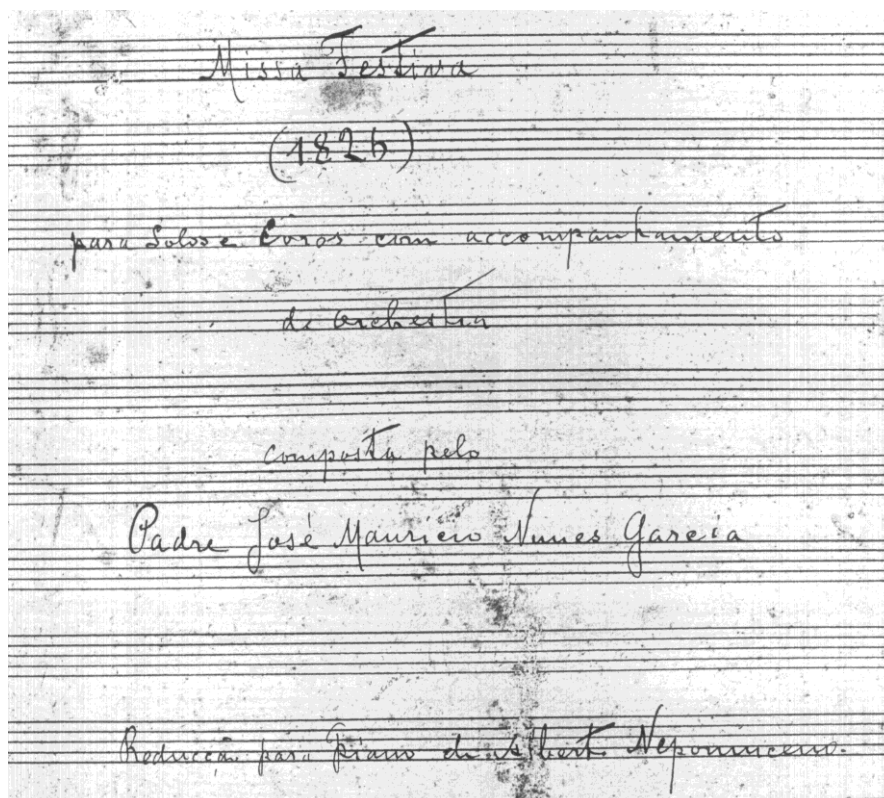 Missa Festiva
(1826)
para Solos e Coros com accompanhamento
de orchestra
composta pelo
Padre José Mauricio Nunes Garcia
Reducção para Piano de Alberto Nepomuceno.